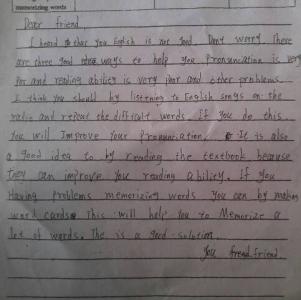 memorizing words
Dear friend.
I heard that you English is not good. Don't worry. There
are three good ways to help you. Pronunciation is very
Poor and reading ability is very poor and other problems.
I think you should by listening to English songs on the
radio and repeat the difficult words. If you do this,
you will Improve your pronunciation. It is also
a good idea to by reading the textbook because
they can improve you reading ability. If you
Having problems memorizing words you can by making
word cards. This will help you to Memorize a
lot of words. The is a good solution.
You friend